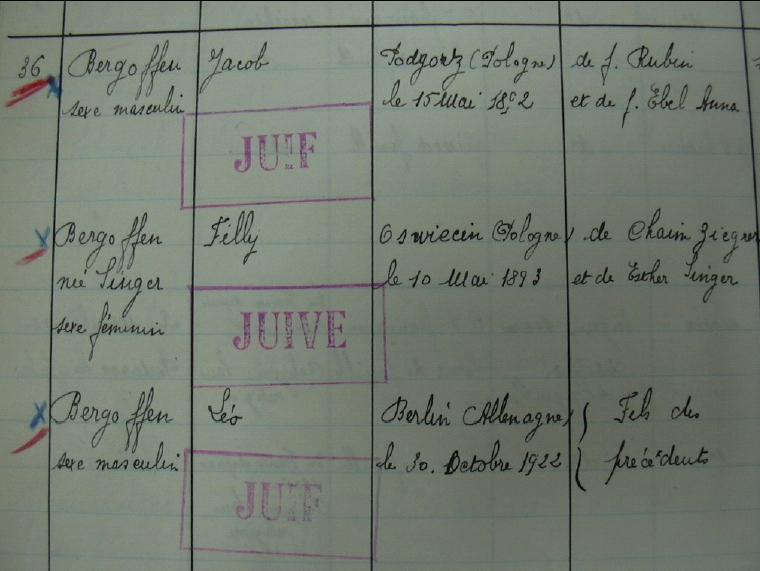 36 Bergoffen Jacob Podgortz (Pologne) de f. Rubin
sexe masculin le 15 Mai 18 2 et de f. Ebel Anna
JUIF
Bergoffen Filly Oswiecin (Pologne) de Chaim Ziegner
née Singer le 10 Mai 1893 et de Esther Singer
sexe féminin
JUIVE
Bergoffen Léo Berlin (Allemagne) Fils des
sexe masculin le 30. Octobre 1922 précédents
JUIF